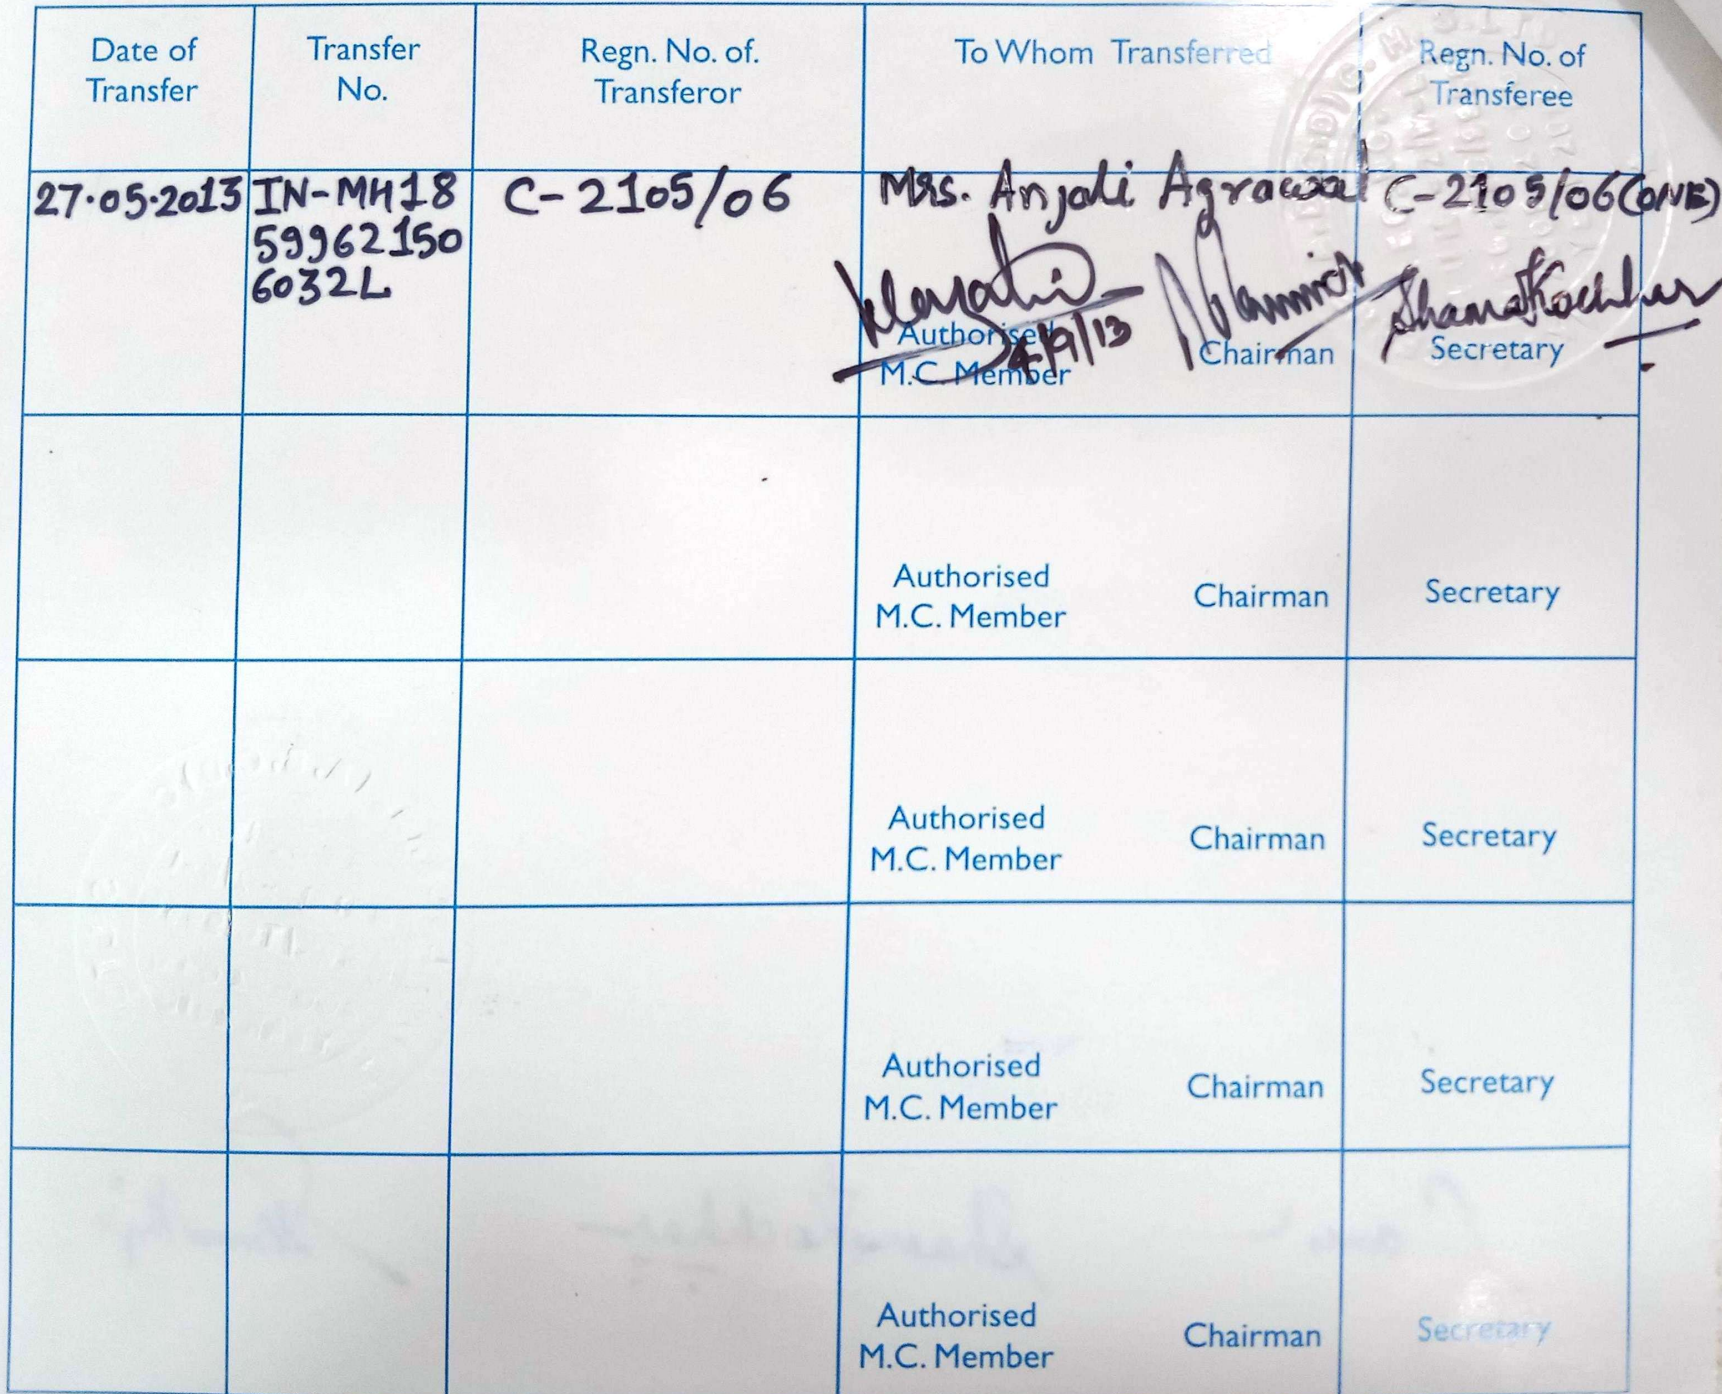 Date of Transfer
Transfer No.
Regn. No. of. Transferor
To Whom Transferred
Regn. No. of Transferee
27.05.2013
IN-MH18
59962150
6032L
C-2105/06
Mrs. Anjali Agrawal
C-2105/06(ONE)
4/9/13
Shama Kochhar
Authorised
M.C. Member
Chairman
Secretary
Authorised
M.C. Member
Chairman
Secretary
Authorised
M.C. Member
Chairman
Secretary
Authorised
M.C. Member
Chairman
Secretary
Authorised
M.C. Member
Chairman
Secretary